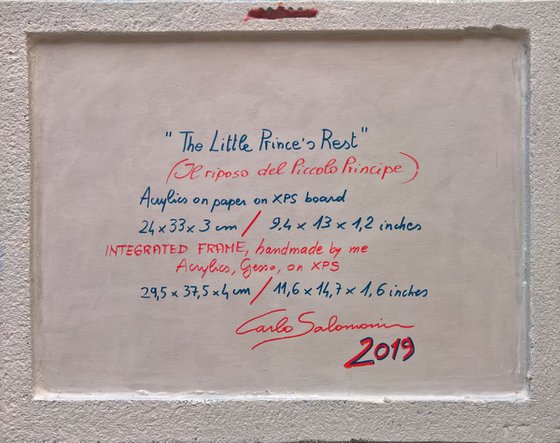 " The Little Prince's Rest"
(Il riposo del Piccolo Principe)
Acrylics on paper on XPS board
24 x 33 x 3 cm / 9,4 x 13 x 1,2 inches
INTEGRATED FRAME, handmade by me
Acrylics, Gesso, on XPS
29,5 x 37,5 x 4 cm / 11,6 x 14,7 x 1,6 inches
Carlo Salomoni
2019